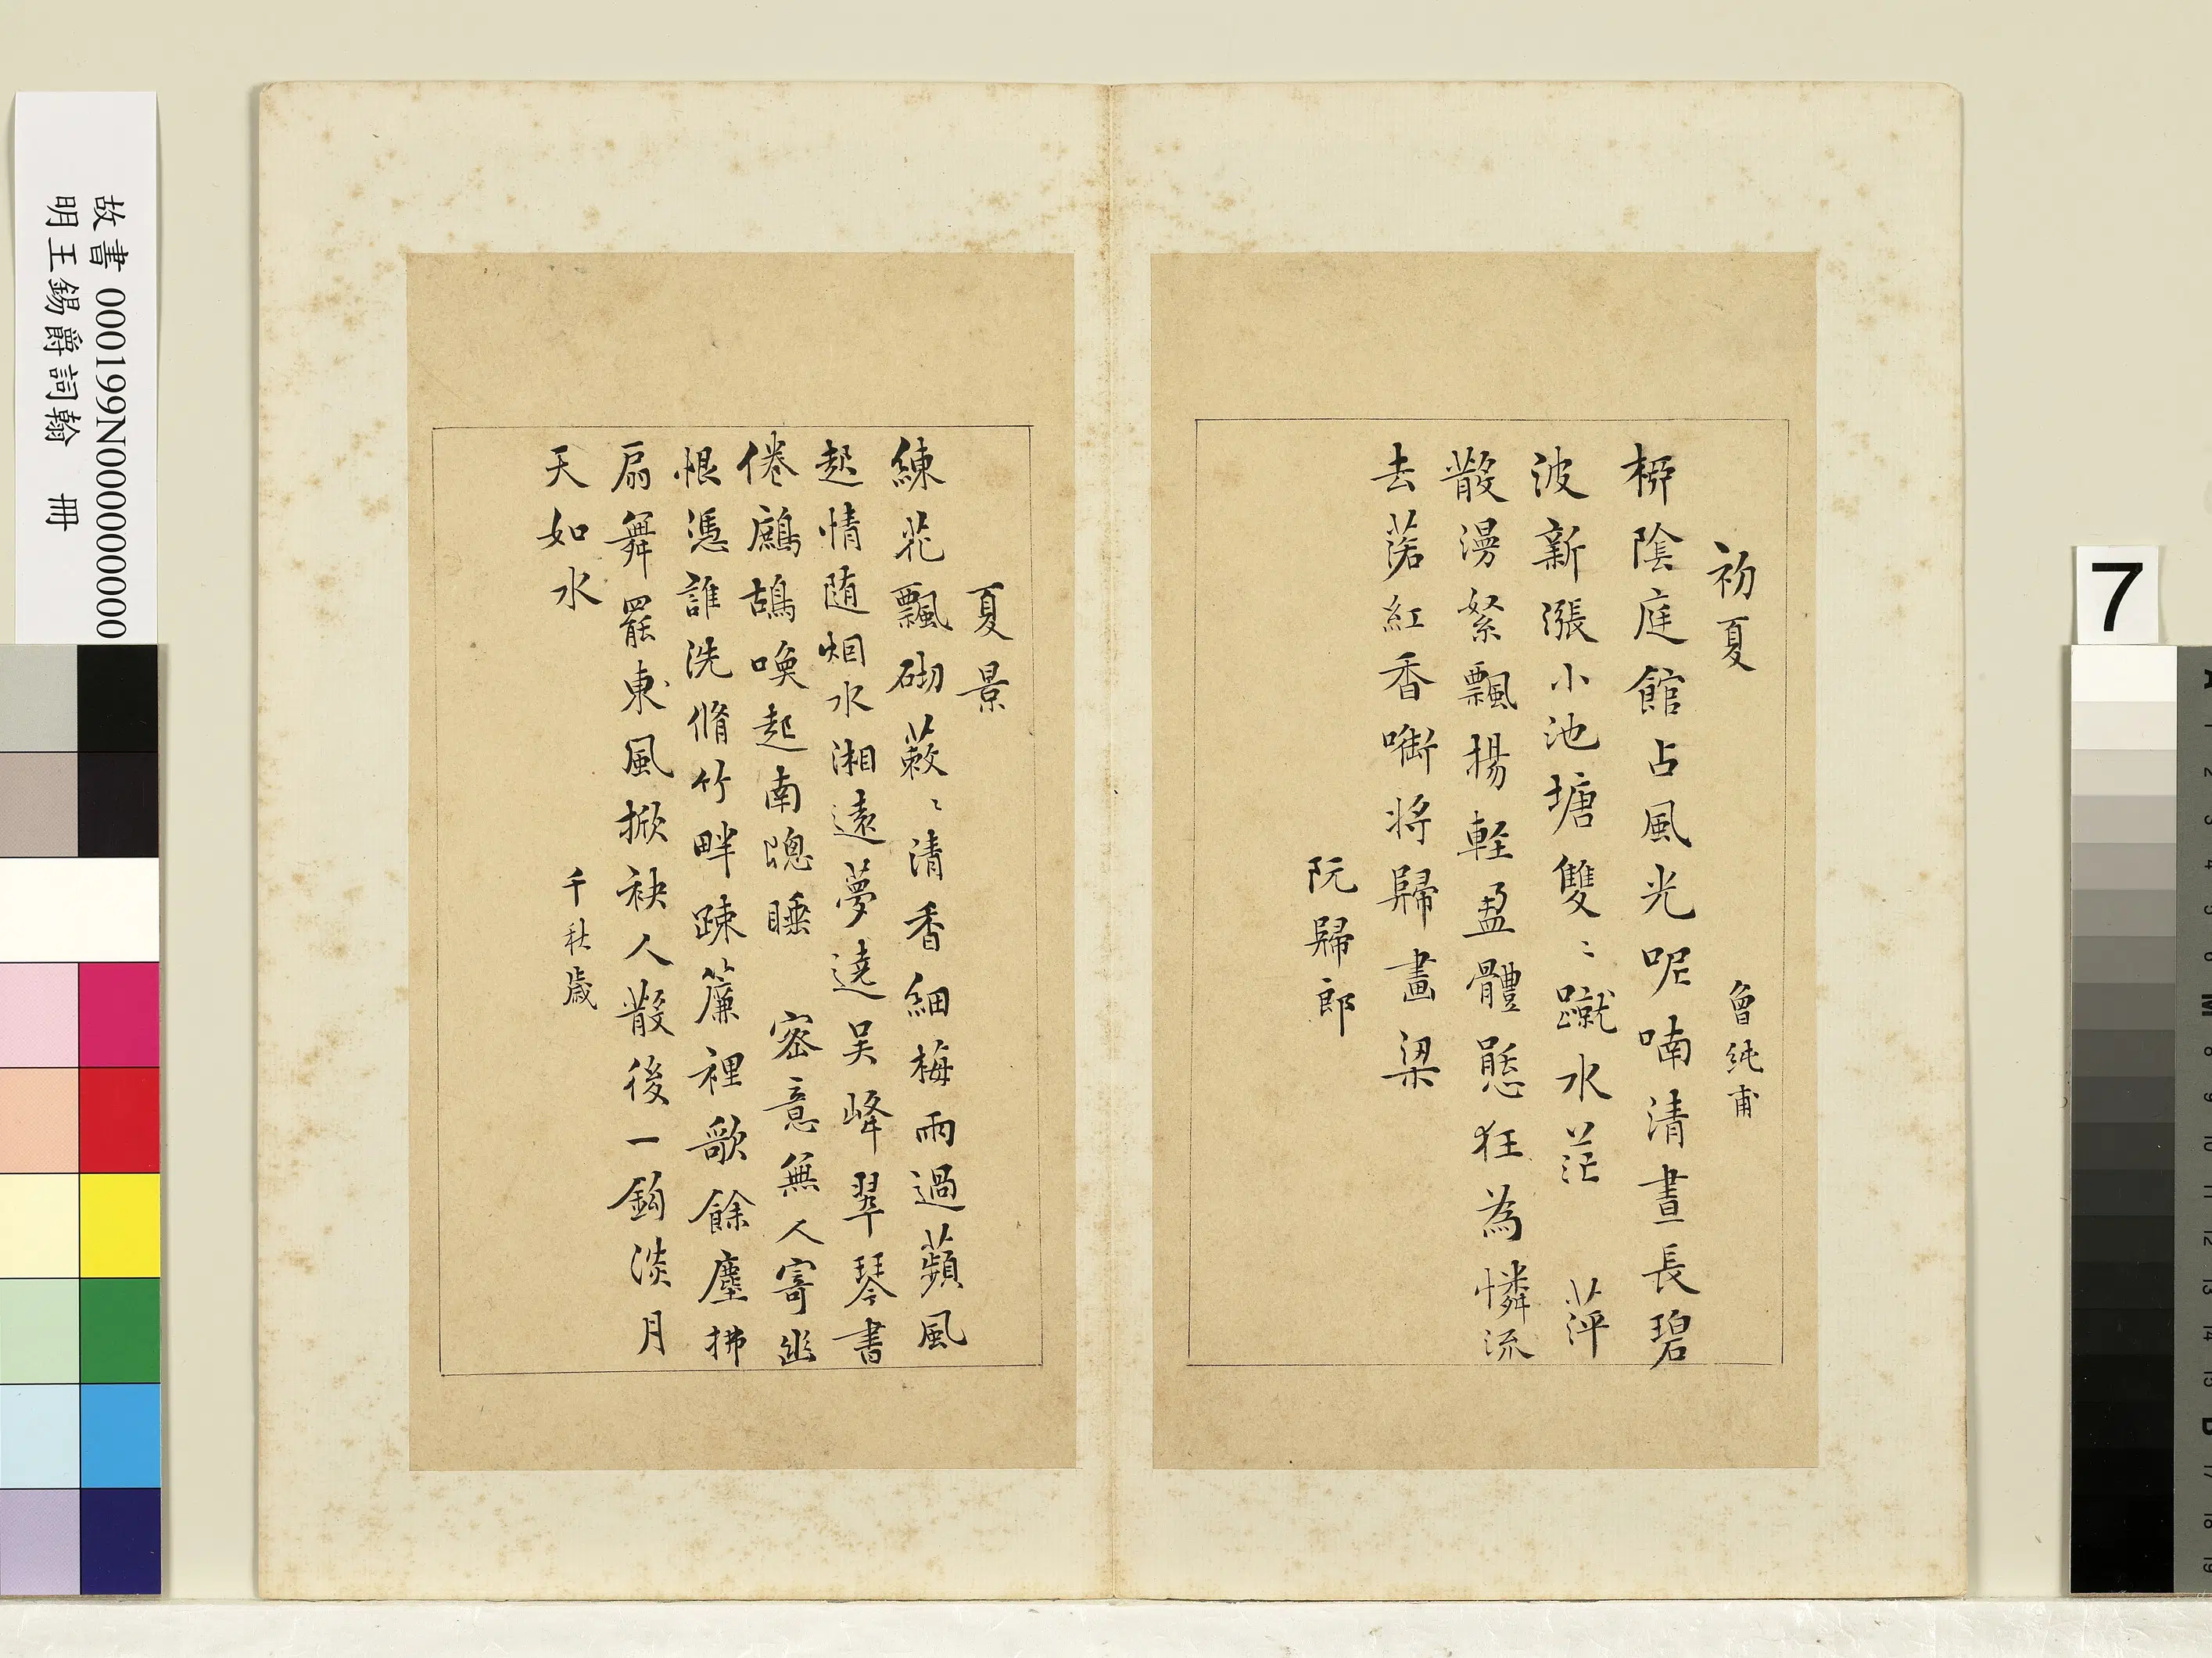 初夏　曾純甫
桺陰庭館占風光呢喃清晝長碧
波新漲小池塘雙〻蹴水茫　萍
散漫絮飄揚輕盈體態狂為憐流
去落紅香啣將歸畫梁
阮歸郎
夏景
練花飄砌蔌〻清香細梅雨過蘋風
起情随烟水湘遠夢遶吴峰翠琴書
倦鷓鴣喚起南窻睡　密意無人寄幽
恨憑誰洗脩竹畔踈簾裡歌餘塵拂
扇舞罷東風掀袂人散後一鈎淡月
天如水
千秋歲
故書 000199N000000000
明王錫爵詞翰　冊
7